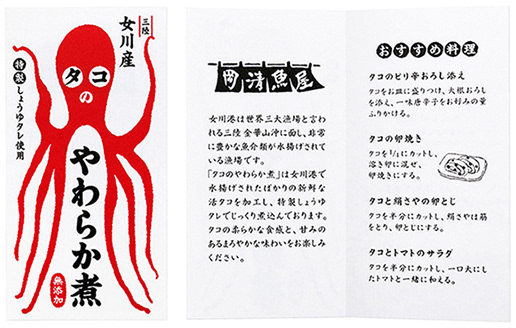 三陸
女川産
特製しょうゆタレ使用
タコの
やわらか煮
無添加
岡清魚屋
女川港は世界三大漁場と言わ
れる三陸 金華山沖に面し、非常
に豊かな魚介類が水揚げされて
いる漁場です。
「タコのやわらか煮」は女川港で
水揚げされたばかりの新鮮な
活タコを加工し、特製しょうゆ
タレでじっくり煮込んでおります。
タコの柔らかな食感と、甘みの
あるまろやかな味わいをお楽しみ
ください。
おすすめ料理
タコのピリ辛おろし添え
タコをお皿に盛りつけ、大根おろし
を添え、一味唐辛子をお好みの量
ふりかける。
タコの卵焼き
タコを1/4にカットし、
溶き卵に混ぜ、
卵焼きにする。
タコと絹さやの卵とじ
タコを半分にカットし、絹さやは筋
をとり、卵とじにする。
タコとトマトのサラダ
タコを半分にカットし、一口大にし
たトマトと一緒に和える。